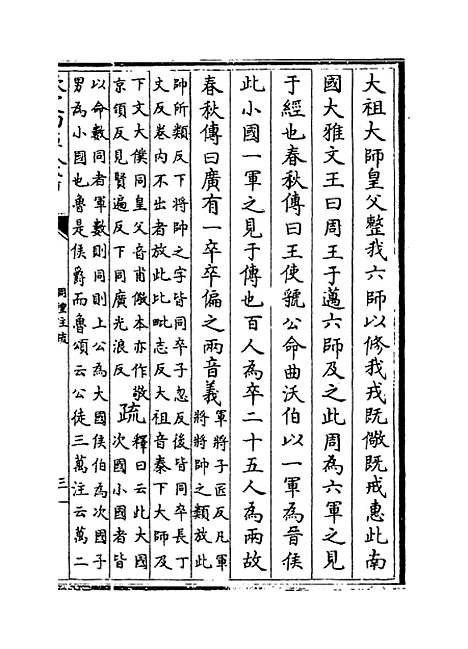 大祖大師皇父整我六師以修我戎既儆既戒惠此南
國大雅文王曰周王于邁六師及之此周為六軍之見
于經也春秋傳曰王使虢公命曲沃伯以一軍為晉侯
此小國一軍之見于傳也百人為卒二十五人為兩故
春秋傳曰廣有一卒卒偏之兩音義軍將子匠反凡軍
將將帥之類放此
帥所類反下將帥之字皆同卒子忽反後皆同卒長丁
文反卷内不出者放此比毗志反大祖音泰下大師及
下文大僕同皇父音甫儆本亦作敬
京領反見賢遍反下同廣光浪反
疏釋曰云此大國
次國小國者皆
以命數同者軍數則同則上公為大國侯伯為次國子
男為小國也魯是侯爵而魯頌云公徒三萬注云萬二
周禮注疏